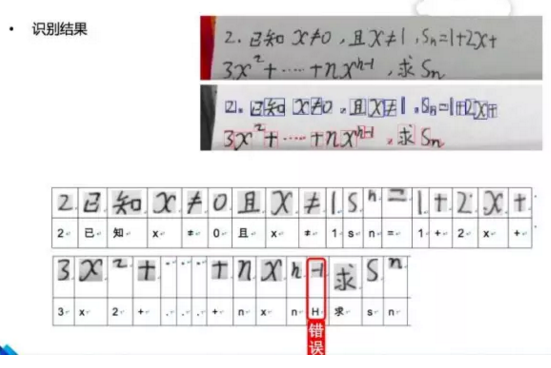 • 识别结果
2. 已知 x≠0，且 x≠1，Sn=1+2x+
3x²+……+nxⁿ⁻¹，求 Sn
2. 已知 x≠0，且 x≠1，Sn=1+2x+
3x²+……+nxⁿ⁻¹，求 Sn
2. 已 知 x ≠ 0 且 x ≠ 1. S n = 1 + 2 x +
2 已 知 x ≠ 0 且 x ≠ 1 s n = 1 + 2 x +
3 x 2 + . . . + n x n -1 求 S n
3 x 2 + . . . + n x n H 求 s n
错误